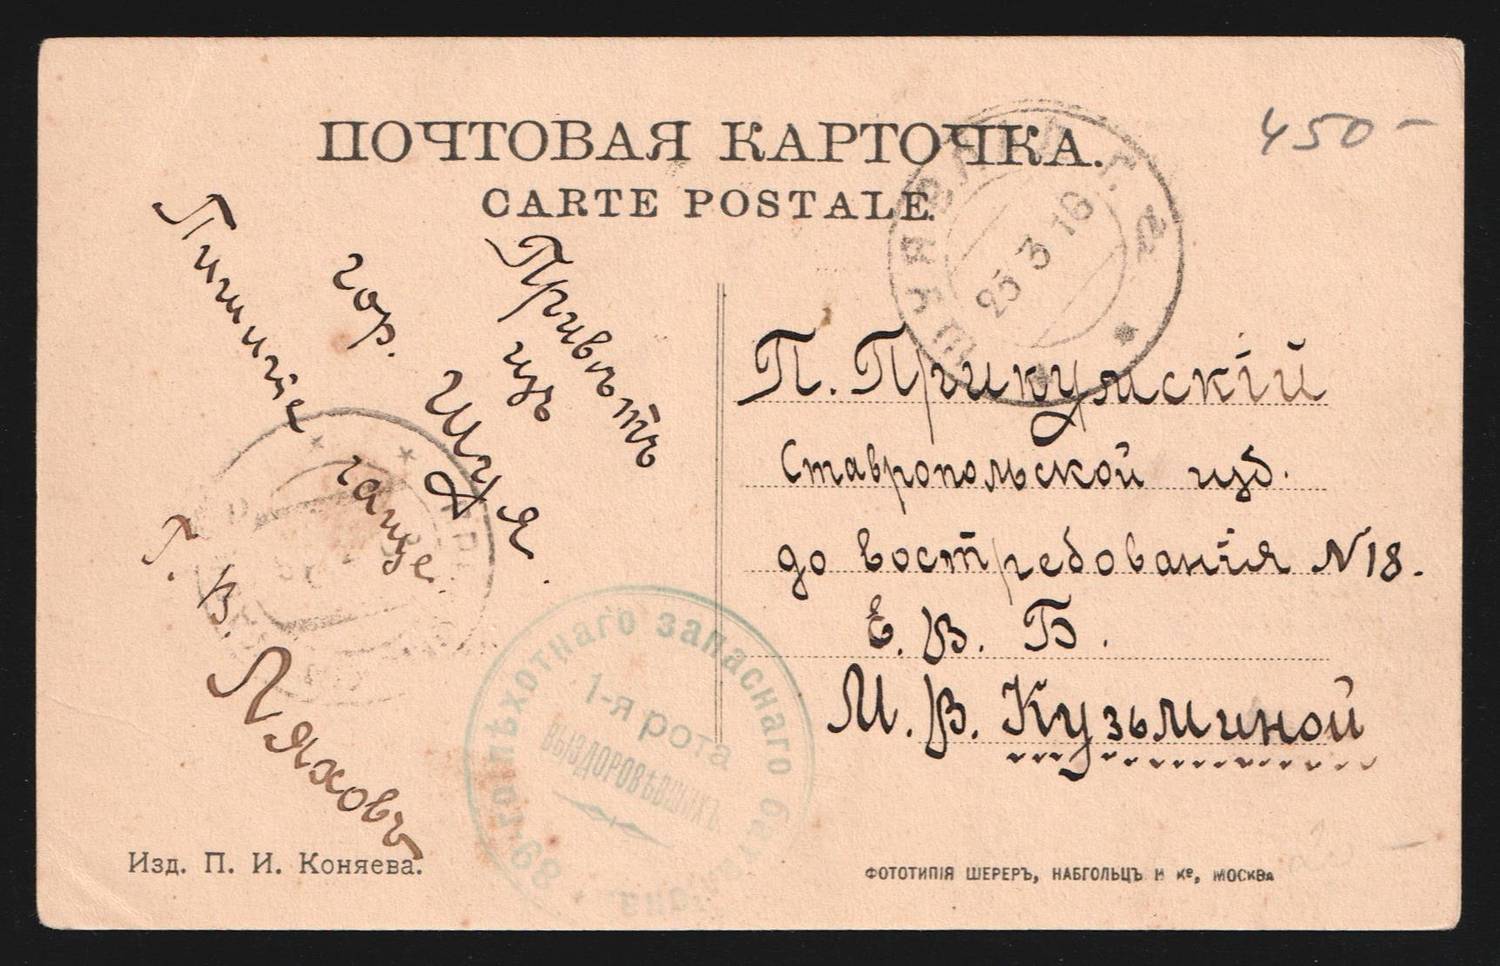 ПОЧТОВАЯ КАРТОЧКА.
CARTE POSTALE.
450-
ШУЯ ВЛАД. Г.
23 3 16
Привѣтъ
изъ
гор. Шуя.
Пишите
чаще.
Г. В. Ляховъ
П. Прикумскій
Ставропольской губ.
до востребованія N18.
Е. В. Б.
М. В. Кузьминой
89-го пѣхотнаго запаснаго баталіона
1-я рота
выздоровѣвшихъ.
Изд. П. И. Коняева.
ФОТОТИПІЯ ШЕРЕРЪ, НАБГОЛЬЦЪ И Ко, МОСКВА